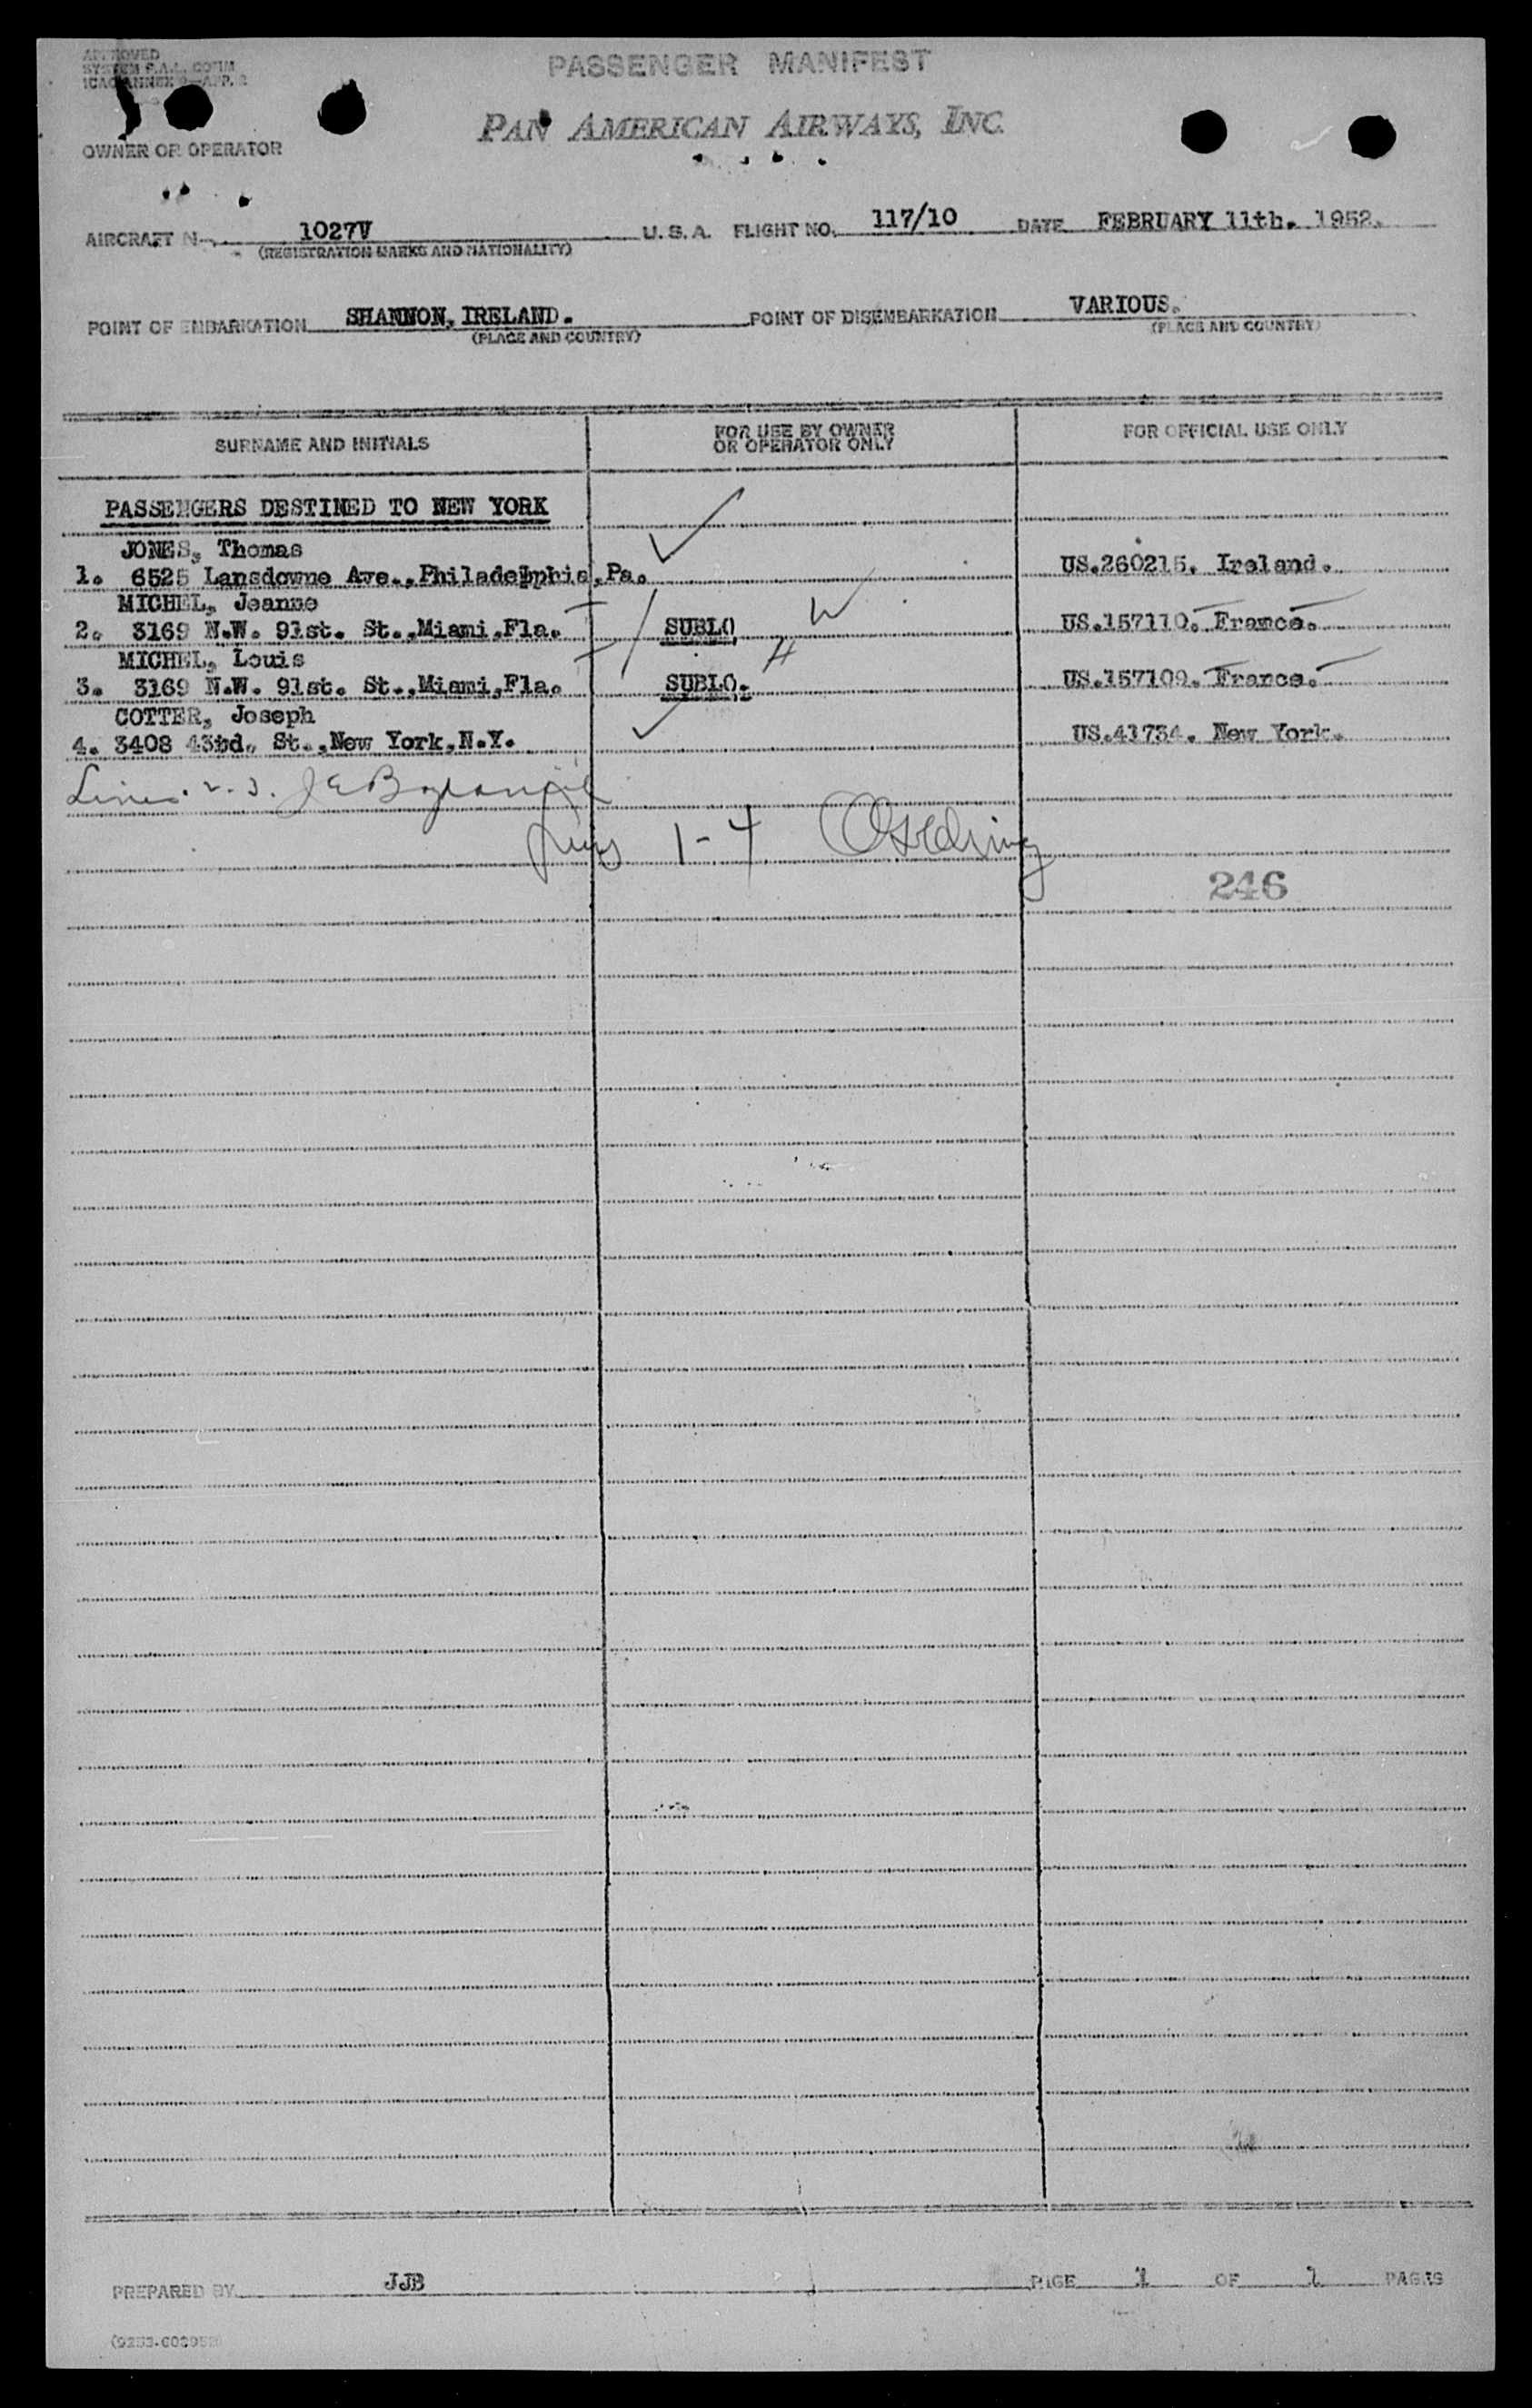 APPROVED
PASSENGER MANIFEST
PAN AMERICAN AIRWAYS, INC.
OWNER OR OPERATOR
AIRCRAFT N- 1027V U. S. A. FLIGHT NO. 117/10 DATE FEBRUARY 11th. 1952.
(REGISTRATION MARKS AND NATIONALITY)
POINT OF EMBARKATION SHANNON, IRELAND. POINT OF DISEMBARKATION VARIOUS.
(PLACE AND COUNTRY) (PLACE AND COUNTRY)
SURNAME AND INITIALS FOR USE BY OWNER OR OPERATOR ONLY FOR OFFICIAL USE ONLY
PASSENGERS DESTINED TO NEW YORK
JONES, Thomas
1. 6525 Lansdowne Ave., Philadelphia, Pa. US.260215. Ireland.
MICHEL, Jeanne
2. 3169 N.W. 91st. St., Miami, Fla. SUBLO US.157110. France.
MICHEL, Louis
3. 3169 N.W. 91st. St., Miami, Fla. SUBLO. US.157109. France.
COTTER, Joseph
4. 3408 43rd. St., New York, N.Y. US.41734. New York.
Lines 2-3.
1-4
246
PREPARED BY JJB PAGE 1 OF 1 PAGES